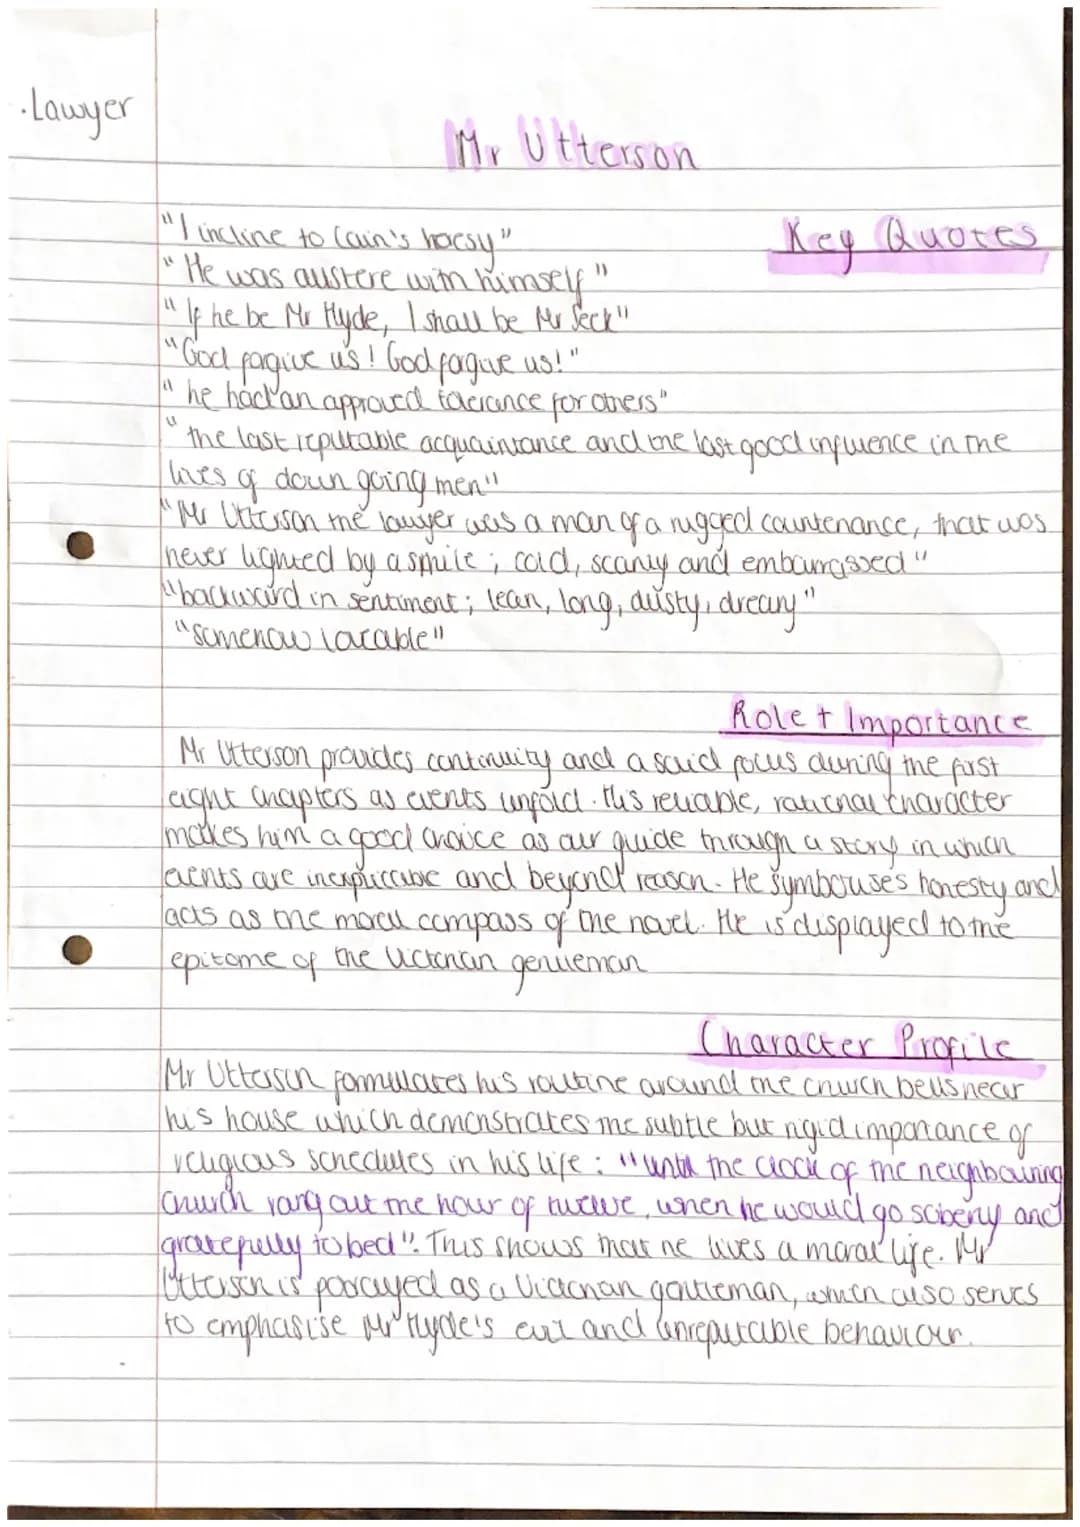 ·Lawyer
Mr Utterson
Key Quotes
"I incline to Cain's heresy"
"He was austere with himself"
"If he be Mr Hyde, I shall be Mr Seek"
"God forgive us! God forgive us!"
"he had an approved tolerance for others"
"the last reputable acquaintance and the last good influence in the
lives of down going men"
"Mr Utterson the lawyer was a man of a rugged countenance, that was
never lighted by a smile; cold, scanty and embarrassed"
"backward in sentiment; lean, long, dusty, dreary"
"somehow lovable"
Role + Importance
Mr Utterson provides continuity and a solid focus during the first
eight chapters as events unfold. His reliable, rational character
makes him a good choice as our guide through a story in which
events are inexplicable and beyond reason. He symbolises honesty and
acts as the moral compass of the novel. He is displayed to the
epitome of the Victorian gentleman
Character Profile
Mr Utterson formulates his routine around the church bells near
his house which demonstrates the subtle but rigid importance of
religious schedules in his life: "until the clock of the neighbouring
church rang out the hour of twelve, when he would go soberly and
gratefully to bed". This shows that he lives a moral life. Mr
Utterson is portrayed as a Victorian gentleman, which also serves
to emphasise Mr Hyde's evil and unreputable behaviour.